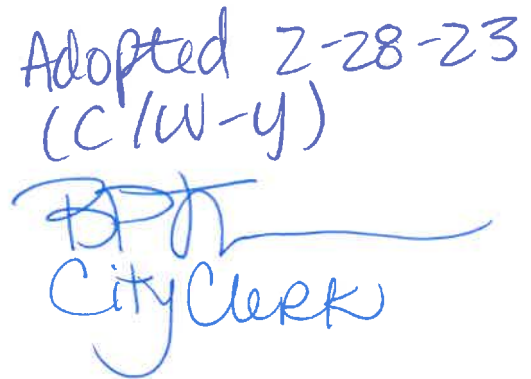 Adopted 2-28-23
(C/W-y)
City Clerk